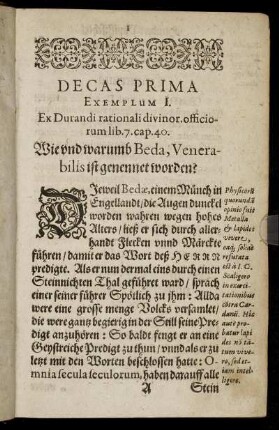 DECAS PRIMA
EXEMPLUM I.
Ex Durandi rationali divinor. officio-
rum lib. 7. cap. 40.
Wie vnd warumb Beda, Venera-
bilis ist genennet worden?
DIeweil Bedæ, einem Münch in
Engellandt, die Augen dunckel
worden wahren wegen hohes
Alters / ließ er sich durch aller-
handt Flecken vnnd Märckte
führen / damit er das Wort deß HERRN
predigte. Als er nun dermal eins durch einen
Steinnichten Thal geführet ward / sprach
einer seiner führer Spötlich zu jhm: Allda
were eine grosse menge Volcks versamlet /
die were gantz begierig in der Still seine Pre-
digt anzuhören: So baldt fengt er an eine
Geystreiche Predigt zu thun / vnnd als er zu
letzt mit den Worten beschlossen hatte: O-
mnia secula seculorum, haben darauff alle
A Stein
Physicorũ
quorundã
opinio fuit
Metalla
& lapides
vivere,
solidè
refutata
est à I. C.
Scaligero
in exerci-
tationibus
contra Car-
danũ.
lapi-
des